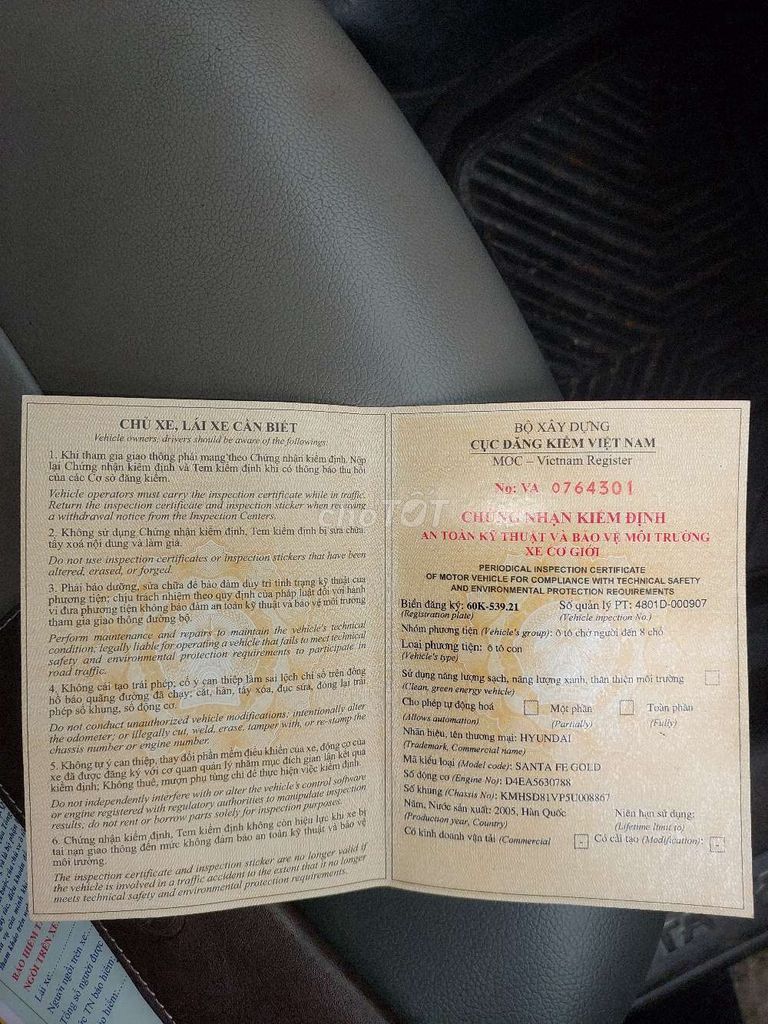 CHỦ XE, LÁI XE CẦN BIẾT
Vehicle owners, drivers should be aware of the followings:
1. Khi tham gia giao thông phải mang theo Chứng nhận kiểm định. Nộp
lại Chứng nhận kiểm định và Tem kiểm định khi có thông báo thu hồi
của các Cơ sở đăng kiểm.
Vehicle operators must carry the inspection certificate while in traffic.
Return the inspection certificate and inspection sticker when receiving
a withdrawal notice from the Inspection Centers.
2. Không sử dụng Chứng nhận kiểm định, Tem kiểm định bị sửa chữa,
tẩy xoá nội dung và làm giả.
Do not use inspection certificates or inspection stickers that have been
altered, erased, or forged.
3. Phải bảo dưỡng, sửa chữa để bảo đảm duy trì tình trạng kỹ thuật của
phương tiện; chịu trách nhiệm theo quy định của pháp luật đối với hành
vi đưa phương tiện không bảo đảm an toàn kỹ thuật và bảo vệ môi trường
tham gia giao thông đường bộ.
Perform maintenance and repairs to maintain the vehicle's technical
condition; legally liable for operating a vehicle that fails to meet technical
safety and environmental protection requirements to participate in
road traffic.
4. Không cải tạo trái phép; cố ý can thiệp làm sai lệch chỉ số trên đồng
hồ báo quãng đường đã chạy; cắt, hàn, tẩy xóa, đục sửa, đóng lại trái
phép số khung, số động cơ.
Do not conduct unauthorized vehicle modifications; intentionally alter
the odometer; or illegally cut, weld, erase, tamper with, or re-stamp the
chassis number or engine number.
5. Không tự ý can thiệp, thay đổi phần mềm điều khiển của xe, động cơ của
xe đã được đăng ký với cơ quan quản lý nhằm mục đích gian lận kết quả
kiểm định; Không thuê, mượn phụ tùng chỉ để thực hiện việc kiểm định.
Do not independently interfere with or alter the vehicle's control software
or engine registered with regulatory authorities to manipulate inspection
results, do not rent or borrow parts solely for inspection purposes.
6. Chứng nhận kiểm định, Tem kiểm định không còn hiệu lực khi xe bị
tai nạn giao thông đến mức không đảm bảo an toàn kỹ thuật và bảo vệ
môi trường.
The inspection certificate and inspection sticker are no longer valid if
the vehicle is involved in a traffic accident to the extent that it no longer
meets technical safety and environmental protection requirements.
BỘ XÂY DỰNG
CỤC ĐĂNG KIỂM VIỆT NAM
MOC – Vietnam Register
No: VA 0764301
CHỨNG NHẬN KIỂM ĐỊNH
AN TOÀN KỸ THUẬT VÀ BẢO VỆ MÔI TRƯỜNG
XE CƠ GIỚI
PERIODICAL INSPECTION CERTIFICATE
OF MOTOR VEHICLE FOR COMPLIANCE WITH TECHNICAL SAFETY
AND ENVIRONMENTAL PROTECTION REQUIREMENTS
Biển đăng ký: 60K-539.21 Số quản lý PT: 4801D-000907
(Registration plate) (Vehicle inpection No.)
Nhóm phương tiện (Vehicle's group): ô tô chở người đến 8 chỗ
Loại phương tiện: ô tô con
(Vehicle's type)
Sử dụng năng lượng sạch, năng lượng xanh, thân thiện môi trường
(Clean, green energy vehicle)
Cho phép tự động hoá Một phần Toàn phần
(Allows automation) (Partially) (Fully)
Nhãn hiệu, tên thương mại: HYUNDAI
(Trademark, Commercial name)
Mã kiểu loại (Model code): SANTA FE GOLD
Số động cơ (Engine No): D4EA5630788
Số khung (Chassis No): KMHSD81VP5U008867
Năm, Nước sản xuất: 2005, Hàn Quốc Niên hạn sử dụng:
(Production year, Country) (Lifetime limit to)
Có kinh doanh vận tải (Commercial Có cải tạo (Modification):
TỐT
BẢO HIỂM T
NGỒI TRÊN XE
Lái xe:
Người ngồi trên xe
Tổng số người được
TN bảo hiểm
hiểm: